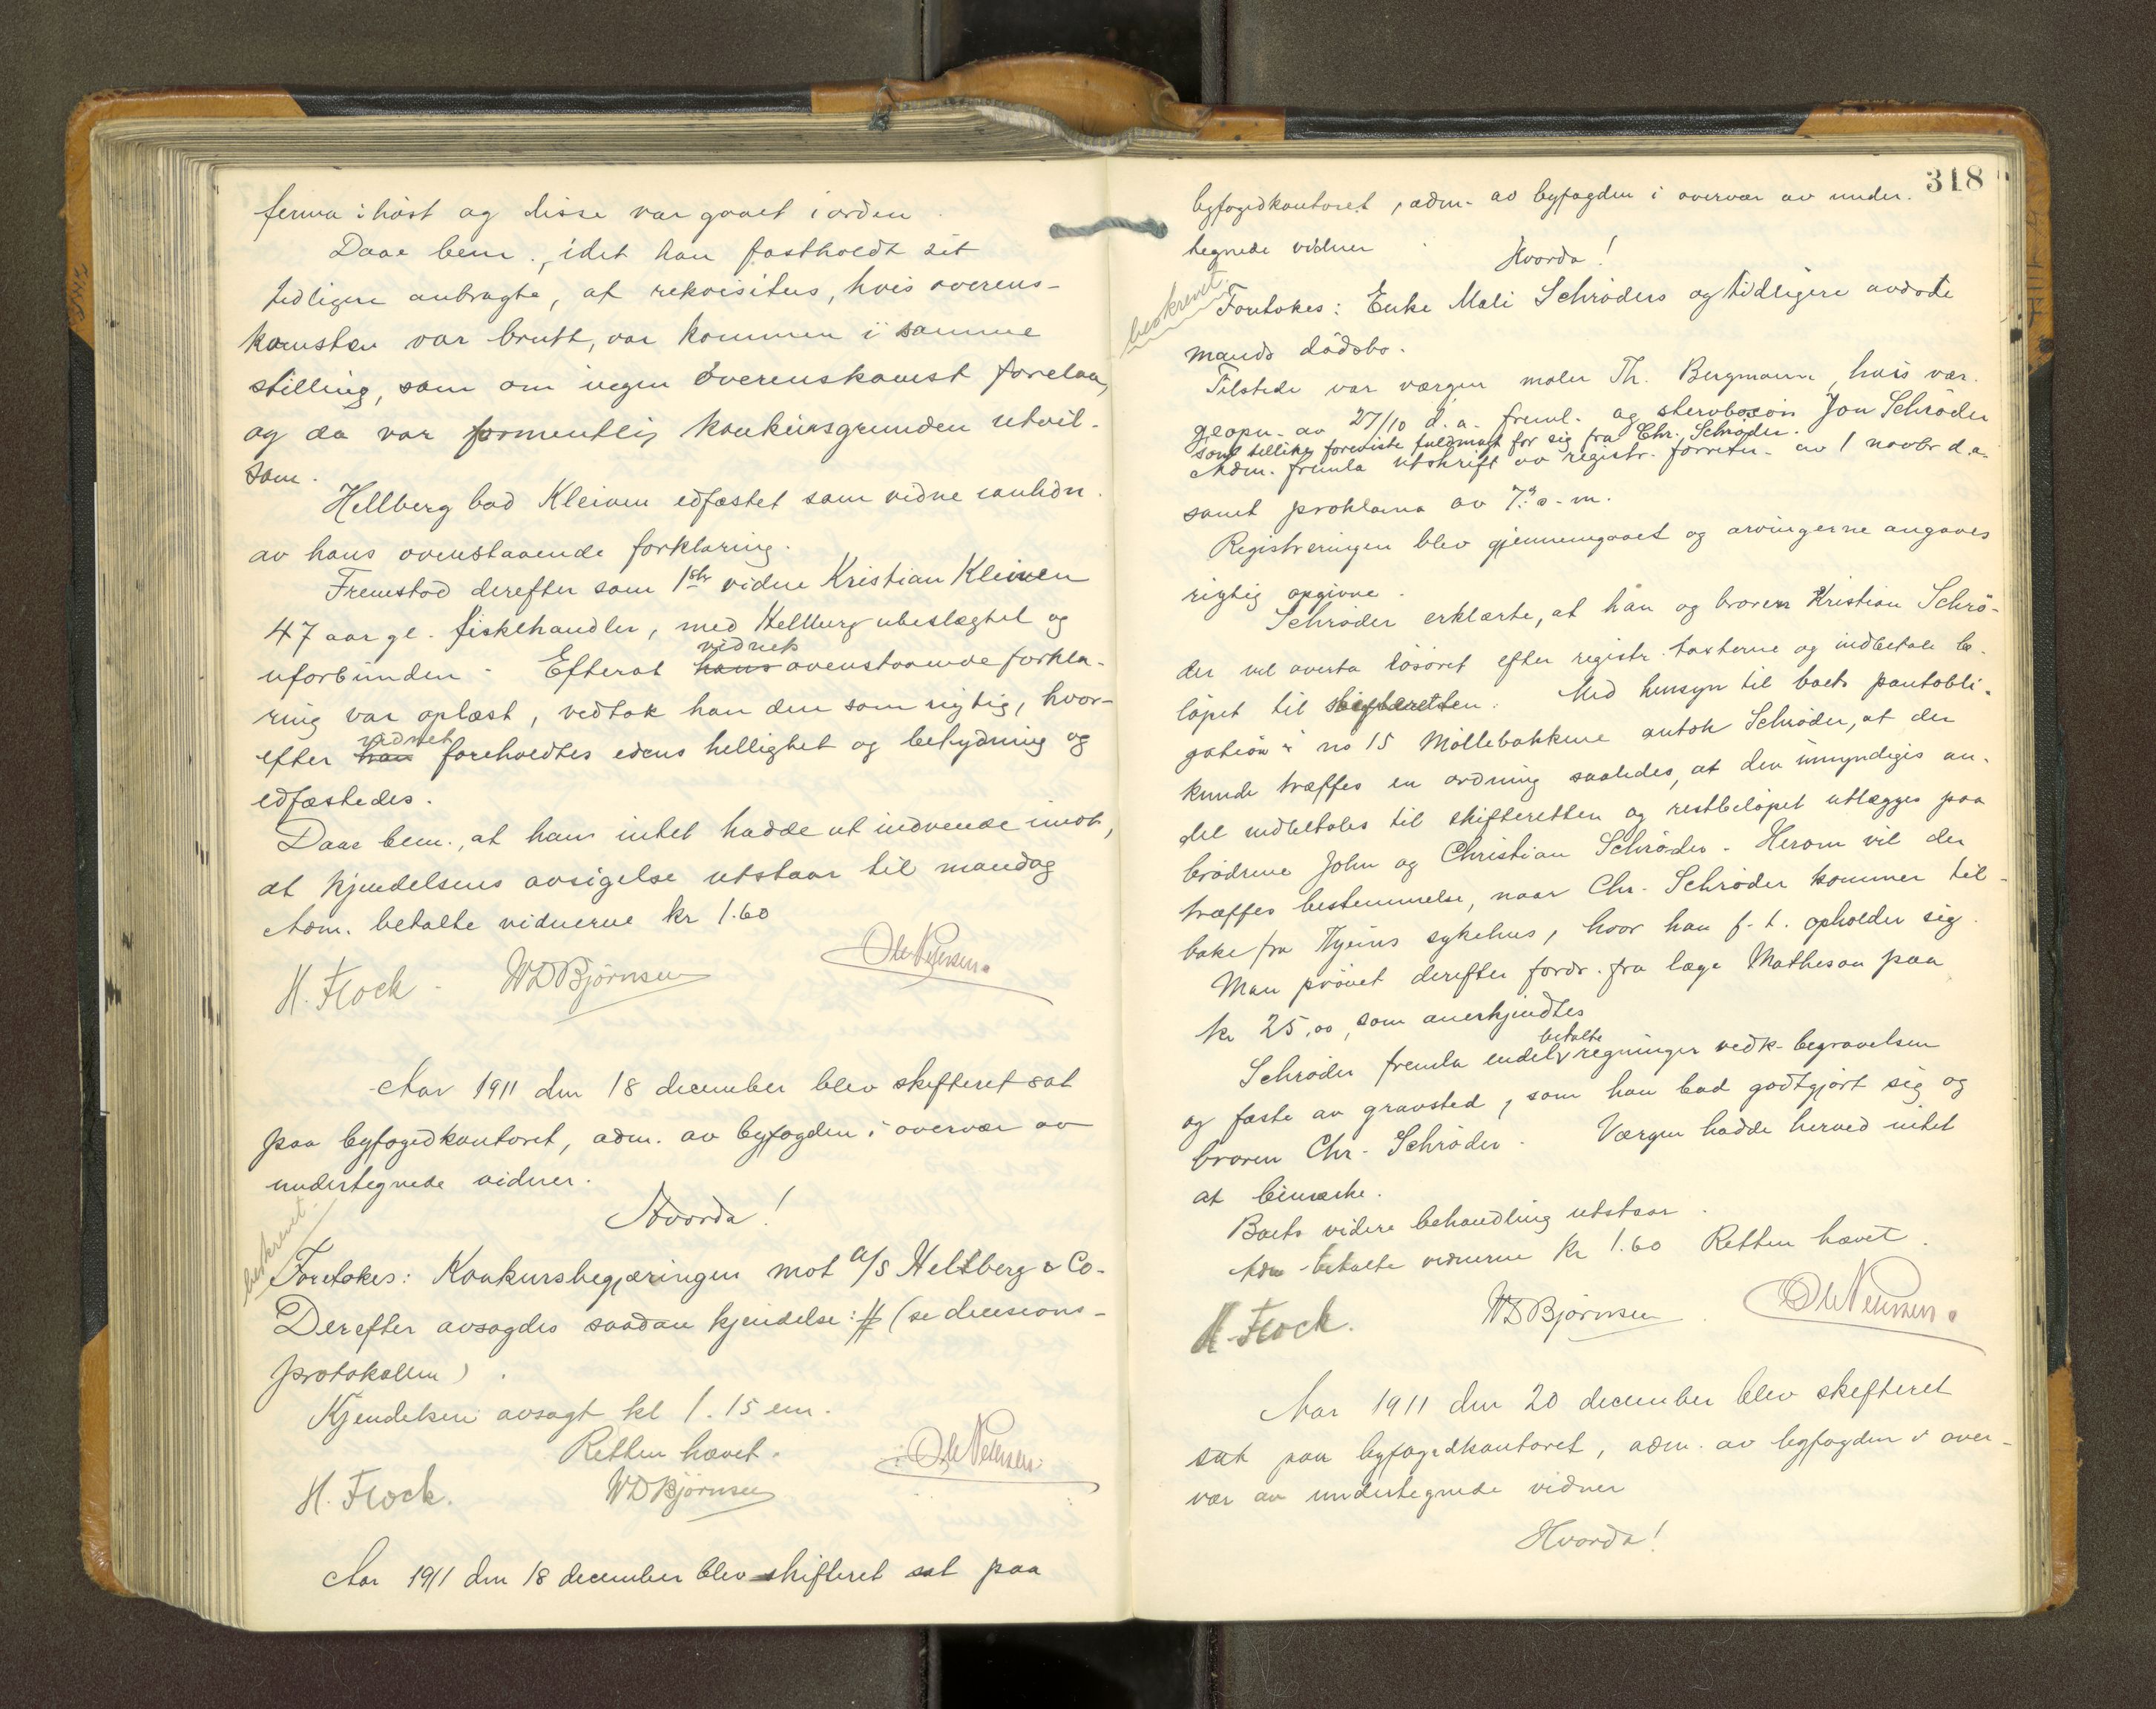 firma i høst og disse var gaaet i orden.
Daae bem., idet han fastholdt sit
tidligere anbragte, at rekvisitus, hvis overens-
komsten var brutt, var kommen i samme
stilling, som om ingen overenskomst forelaa,
og da var formentlig konkursgrunden utvil-
som.
Hellberg bad Kleiven edfæstet som vidne
av hans ovenstaaende forklaring.
Fremstod derefter som 1ste vidne Kristian Kleiven
47 aar gl. fiskehandler, med Hellberg ubeslægtet og
uforbunden. Efterat hans vidnets ovenstaaende forkla-
ring var oplæst, vedtok han den som rigtig, hvor-
efter han vidnet foreholdtes edens hellighet og betydning og
edfæstedes.
Daae bem., at han intet hadde at indvende imot,
at kjendelsens avsigelse utstaar til mandag
Adm. betalte vidnerne kr 1.60
H. Flock. WDBjørnsen Ole Nilssen.
Aar 1911 den 18 december blev skifteret sat
paa byfogedkontoret, adm. av byfogden i overvær av
undertegnede vidner.
Hvorda!
beskrevet.
Foretokes: Konkursbegjæringen mot a/s Hellberg & Co.
Derefter avsagdes saadan kjendelse: # (se decisions-
protokollen).
Kjendelsen avsagt kl 1.15 em.
Retten hævet.
H. Flock. WDBjørnsen Ole Nilssen.
Aar 1911 den 18 december blev skifteret sat paa
318
byfogedkontoret, adm. av byfogden i overvær av under-
tegnede vidner
Hvorda!
beskrevet.
Foretokes: Enke Mali Schrøders og tidligere avdøde
mands dødsbo.
Tilstede var værgen maler Th. Bergmann, hvis vær-
geopn. av 27/10 d.a. freml. og stervboson Jon Schrøder
som tillike foreviste fuldmagt for sig fra Chr. Schrøder.
Adm. fremla utskrift av registr. forretn. av 1 novbr d.a.
samt proklama av 7. s.m.
Registreringen blev gjennemgaaet og arvingerne angaves
rigtig opgivne.
Schrøder erklærte, at han og broren Kristian Schrø-
der vil overta løsøret efter registr. taxterne og indbetale be-
løpet til skifteretten. Med hensyn til boets pantobli-
gation i no 15 Møllebakkene antok Schrøder, at der
kunde træffes en ordning saaledes, at den umyndiges an-
del indbetales til skifteretten og restbeløpet utlægges paa
brødrene John og Christian Schrøder. Herom vil der
træffes bestemmelse, naar Chr. Schrøder kommer til-
bake fra sykehus, hvor han f.t. opholder sig.
Man prøvet derefter fordr. fra læge Matheson paa
kr 25,00, som anerkjendtes
Schrøder fremla endel betalte regninger vedk. begravelsen
og fæste av gravsted, som han bad godtgjort sig og
broren Chr. Schrøder. Værgen hadde herved intet
at bemerke.
Boets videre behandling utstaar.
Adm. betalte vidnerne kr 1.60 Retten hævet.
H. Flock. WDBjørnsen. Ole Nilssen.
Aar 1911 den 20 december blev skifteret
sat paa byfogedkontoret, adm. av byfogden i over-
vær av undertegnede vidner
Hvorda!